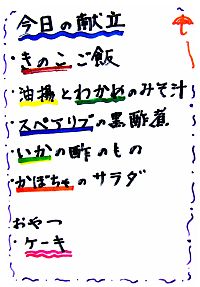 今日の献立
・きのこご飯
・油揚とわかめのみそ汁
・スペアリブの黒酢煮
・いかの酢のもの
・かぼちゃのサラダ
おやつ
・ケーキ